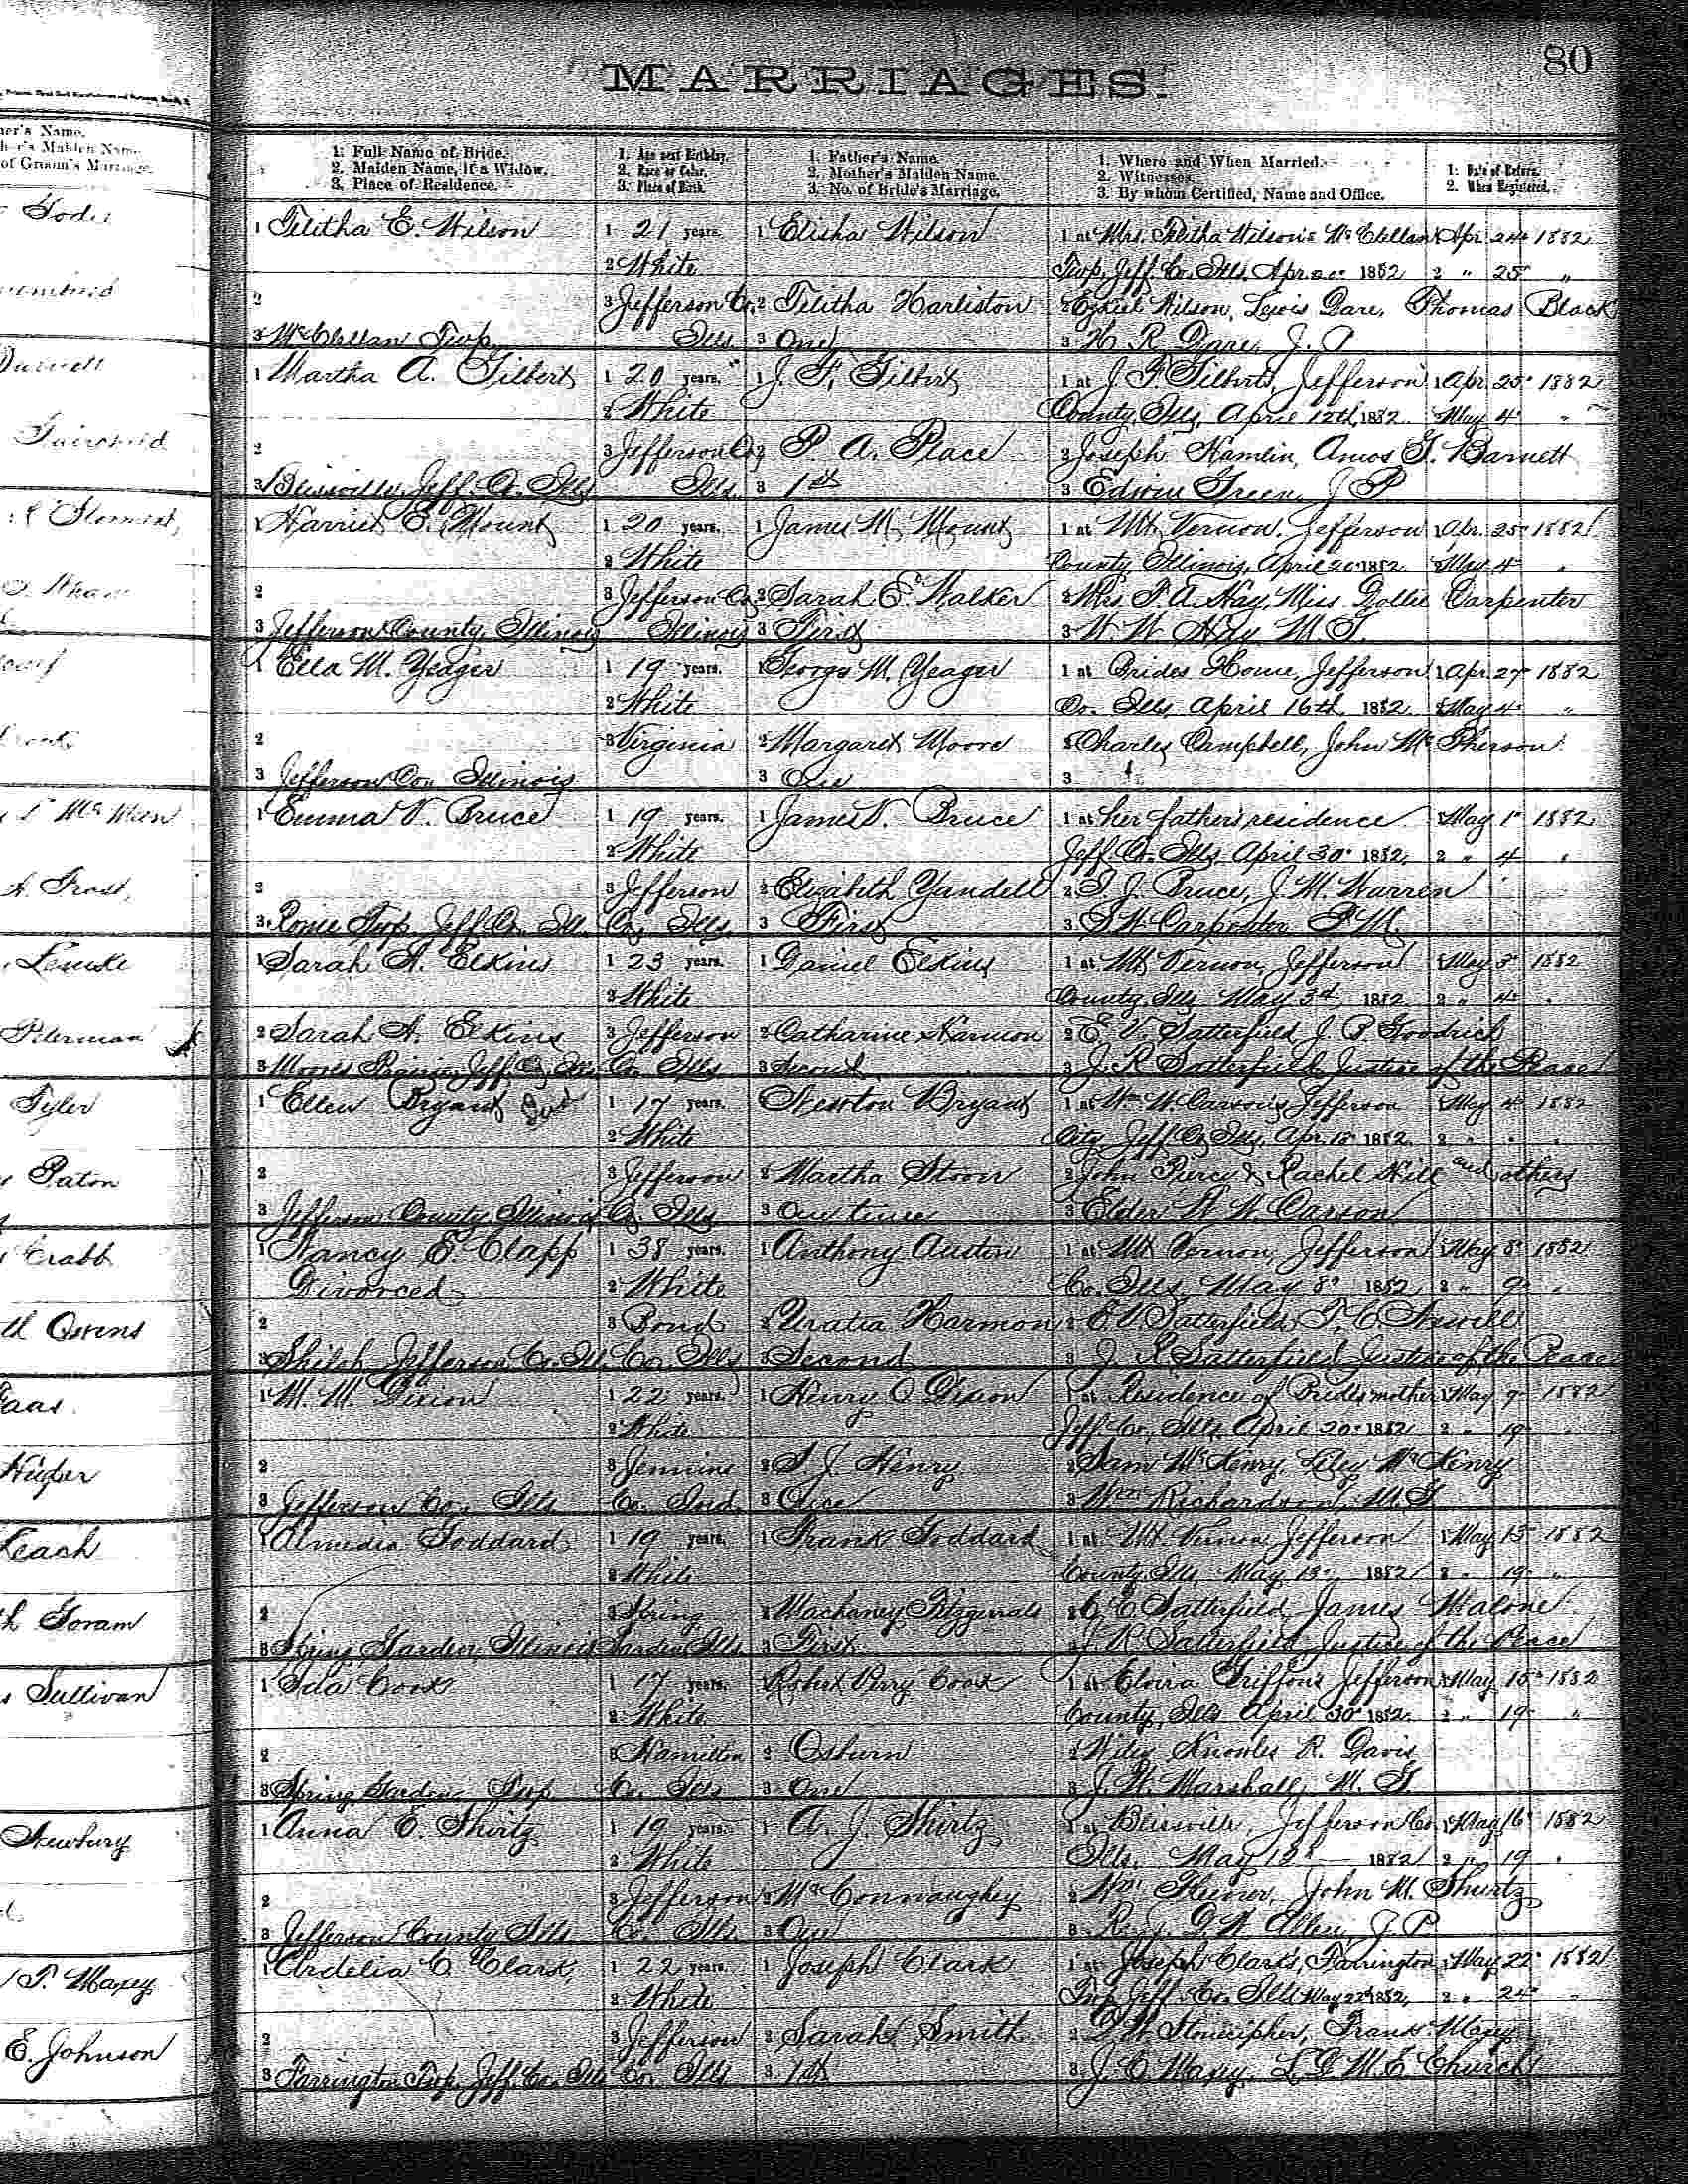 80
MARRIAGES.
Father's Name.
Mother's Maiden Name.
of Groom's Marriage.
1. Full Name of Bride. 1. Age next Birthday. 1. Father's Name. 1. Where and When Married. 1. Date of Return.
2. Maiden Name, if a Widow. 2. Race or Color. 2. Mother's Maiden Name. 2. Witnesses. 2. When Registered.
3. Place of Residence. 3. Place of Birth. 3. No. of Bride's Marriage. 3. By whom Certified, Name and Office.
1 Tilitha E. Wilson 1 21 years. 1 Elisha Wilson 1 at Mrs. Tilitha Wilson's McClellan 1 Apr 24 1882
2 White Twp, Jeff. Co. Ills. Apr. 20 1882 2 " 25 "
2 3 Jefferson Co. 2 Tilitha Harliston 2 Ezekiel Wilson, Lewis Dare, Thomas Black
3 McClellan Twp. Ills. 3 One 3 H. R. Dare, J. P.
1 Martha A. Gilbert 1 20 years. 1 J. F. Gilbert 1 at J. F. Gilbert's, Jefferson 1 Apr. 25 1882
2 White County, Ills, April 12th, 1882 2 May 4 "
2 3 Jefferson Co 2 P. A. Place 2 Joseph Hamlin, Amos G. Barnett
3 Blissville, Jeff. Co. Ills Ills. 3 1st 3 Edwin Green, J P
1 Harriet E. Mount 1 20 years. 1 James M. Mount 1 at Mt. Vernon, Jefferson 1 Apr. 25 1882
2 White County, Illinois, April 20 1882 2 May 4 "
2 3 Jefferson Co 2 Sarah E. Walker 2 Mrs. F. A. Hay, Miss Dollie Carpenter
3 Jefferson County, Illinois Illinois 3 First 3 W W Hay M. G.
1 Ella M. Yeager 1 19 years. 1 George M. Yeager 1 at Brides Home, Jefferson 1 Apr. 27 1882
2 White Co. Ills, April 16th, 1882 2 May 4 "
2 3 Virginia 2 Margaret Moore 2 Charles Campbell, John McPherson
3 Jefferson Co., Illinois 3 3
1 Emma V. Bruce 1 19 years. 1 James V. Bruce 1 at her father's residence 1 May 1 1882
2 White Jeff. Co. Ills. April 30 1882, 2 " 4 "
2 3 Jefferson 2 Elizabeth Yandell 2 J. Bruce, J. M. Warren
3 Rome Twp. Jeff Co. Ill. Co. Ills. 3 First 3 Carpenter
1 Sarah A. Elkins 1 23 years. 1 Daniel Elkins 1 at Mt Vernon, Jefferson 1 May 3 1882
2 White County, Ills May 3d, 1882 2 " 4 "
2 Sarah A. Elkins 3 Jefferson 2 Catharine Harmon 2 E. V. Satterfield, J. P. Goodrich
3 Moores Prairie, Jeff. Co. Ills Co. Ills 3 Second 3 J. R. Satterfield, Justice of the Peace
1 Ellen Bryant 1 17 years. Newton Bryant 1 at Wm. W. Carson's, Jefferson 1 May 4 1882
2 White City, Jeff Co, Ills, Apr. 13 1882. 2 " " "
2 3 Jefferson 2 Martha Stoon 2 John Pierce & Rachel Hill and others
3 Jefferson County, Illinois Co Ills 3 one time 3 Elder W. W. Carson
1 Nancy E. Clapp 1 38 years. 1 Anthony Austin 1 at Mt Vernon, Jefferson 1 May 8 1882
Divorced 2 White Co. Ills, May 8 1882 2 " 9 "
2 3 Bond 2 Harmon 2 E. V. Satterfield, T. C. Newell
3 Shiloh, Jefferson Co. Ill. Co. Ills 3 Second 3 J. R. Satterfield, Justice of the Peace
1 M. M. Dixon 1 22 years. 1 Henry O Dixon 1 at Residence of Brides mother 1 May 9 1882
2 White Jeff. Co., Ills. April 20 1882 2 " 19 "
2 3 Jennins 2 S. J. Henry 2 Sam McHenry, McHenry
3 Jefferson Co., Ills Co. Ind. 3 One 3 Wm. Richardson, M. G.
1 Almedia Goddard 1 19 years. 1 Frank Goddard 1 at Mt. Vernon, Jefferson 1 May 13 1882
2 White County, Ills, May 13, 1882 2 " 19 "
2 3 Spring 2 Machaney Fitzgerald 2 Satterfield, James Malone
3 Spring Garden, Illinois Garden Ills 3 First 3 J. R. Satterfield, Justice of the Peace
1 Ida Cook 1 17 years. Robert Perry Cook 1 at Elvira Griffon's Jefferson 1 May 15 1882
2 White County, Ills April 30 1882. 2 " 19 "
2 3 Hamilton 2 Osburn 2 Wiley Knowles R. Davis
3 Spring Garden Twp Co. Ills 3 One 3 J. W. Marshall, M. G.
1 Anna E. Shirtz 1 19 years. 1 A. J. Shirtz 1 at Blissville, Jefferson Co. 1 May 16 1882
2 White Ills. May 12 1882 2 " 19 "
2 3 Jefferson 2 McConnaughey 2 Wm. John M. Shurtz
3 Jefferson County Ills Co. Ills 3 One 3 Allen, J. P.
1 Ardelia C Clark, 1 22 years. 1 Joseph Clark 1 at Joseph Clark's, Farrington 1 May 22 1882
2 White Twp Jeff. Co. Ills May 22d 1882, 2 " 24 "
2 3 Jefferson 2 Sarah Smith 2 Stonecipher, Frank Maxey
3 Farrington Twp. Jeff. Co. Ills Co. Ills 3 1st 3 J. C. Maxey. L. D. M. E. Church
McMeen
A. Frost,
Lemke
Peterman
Tyler
Paton
Crabb
Owens
Haas
Leach
Goram
Sullivan
Newbury
T. Maxey
E. Johnson